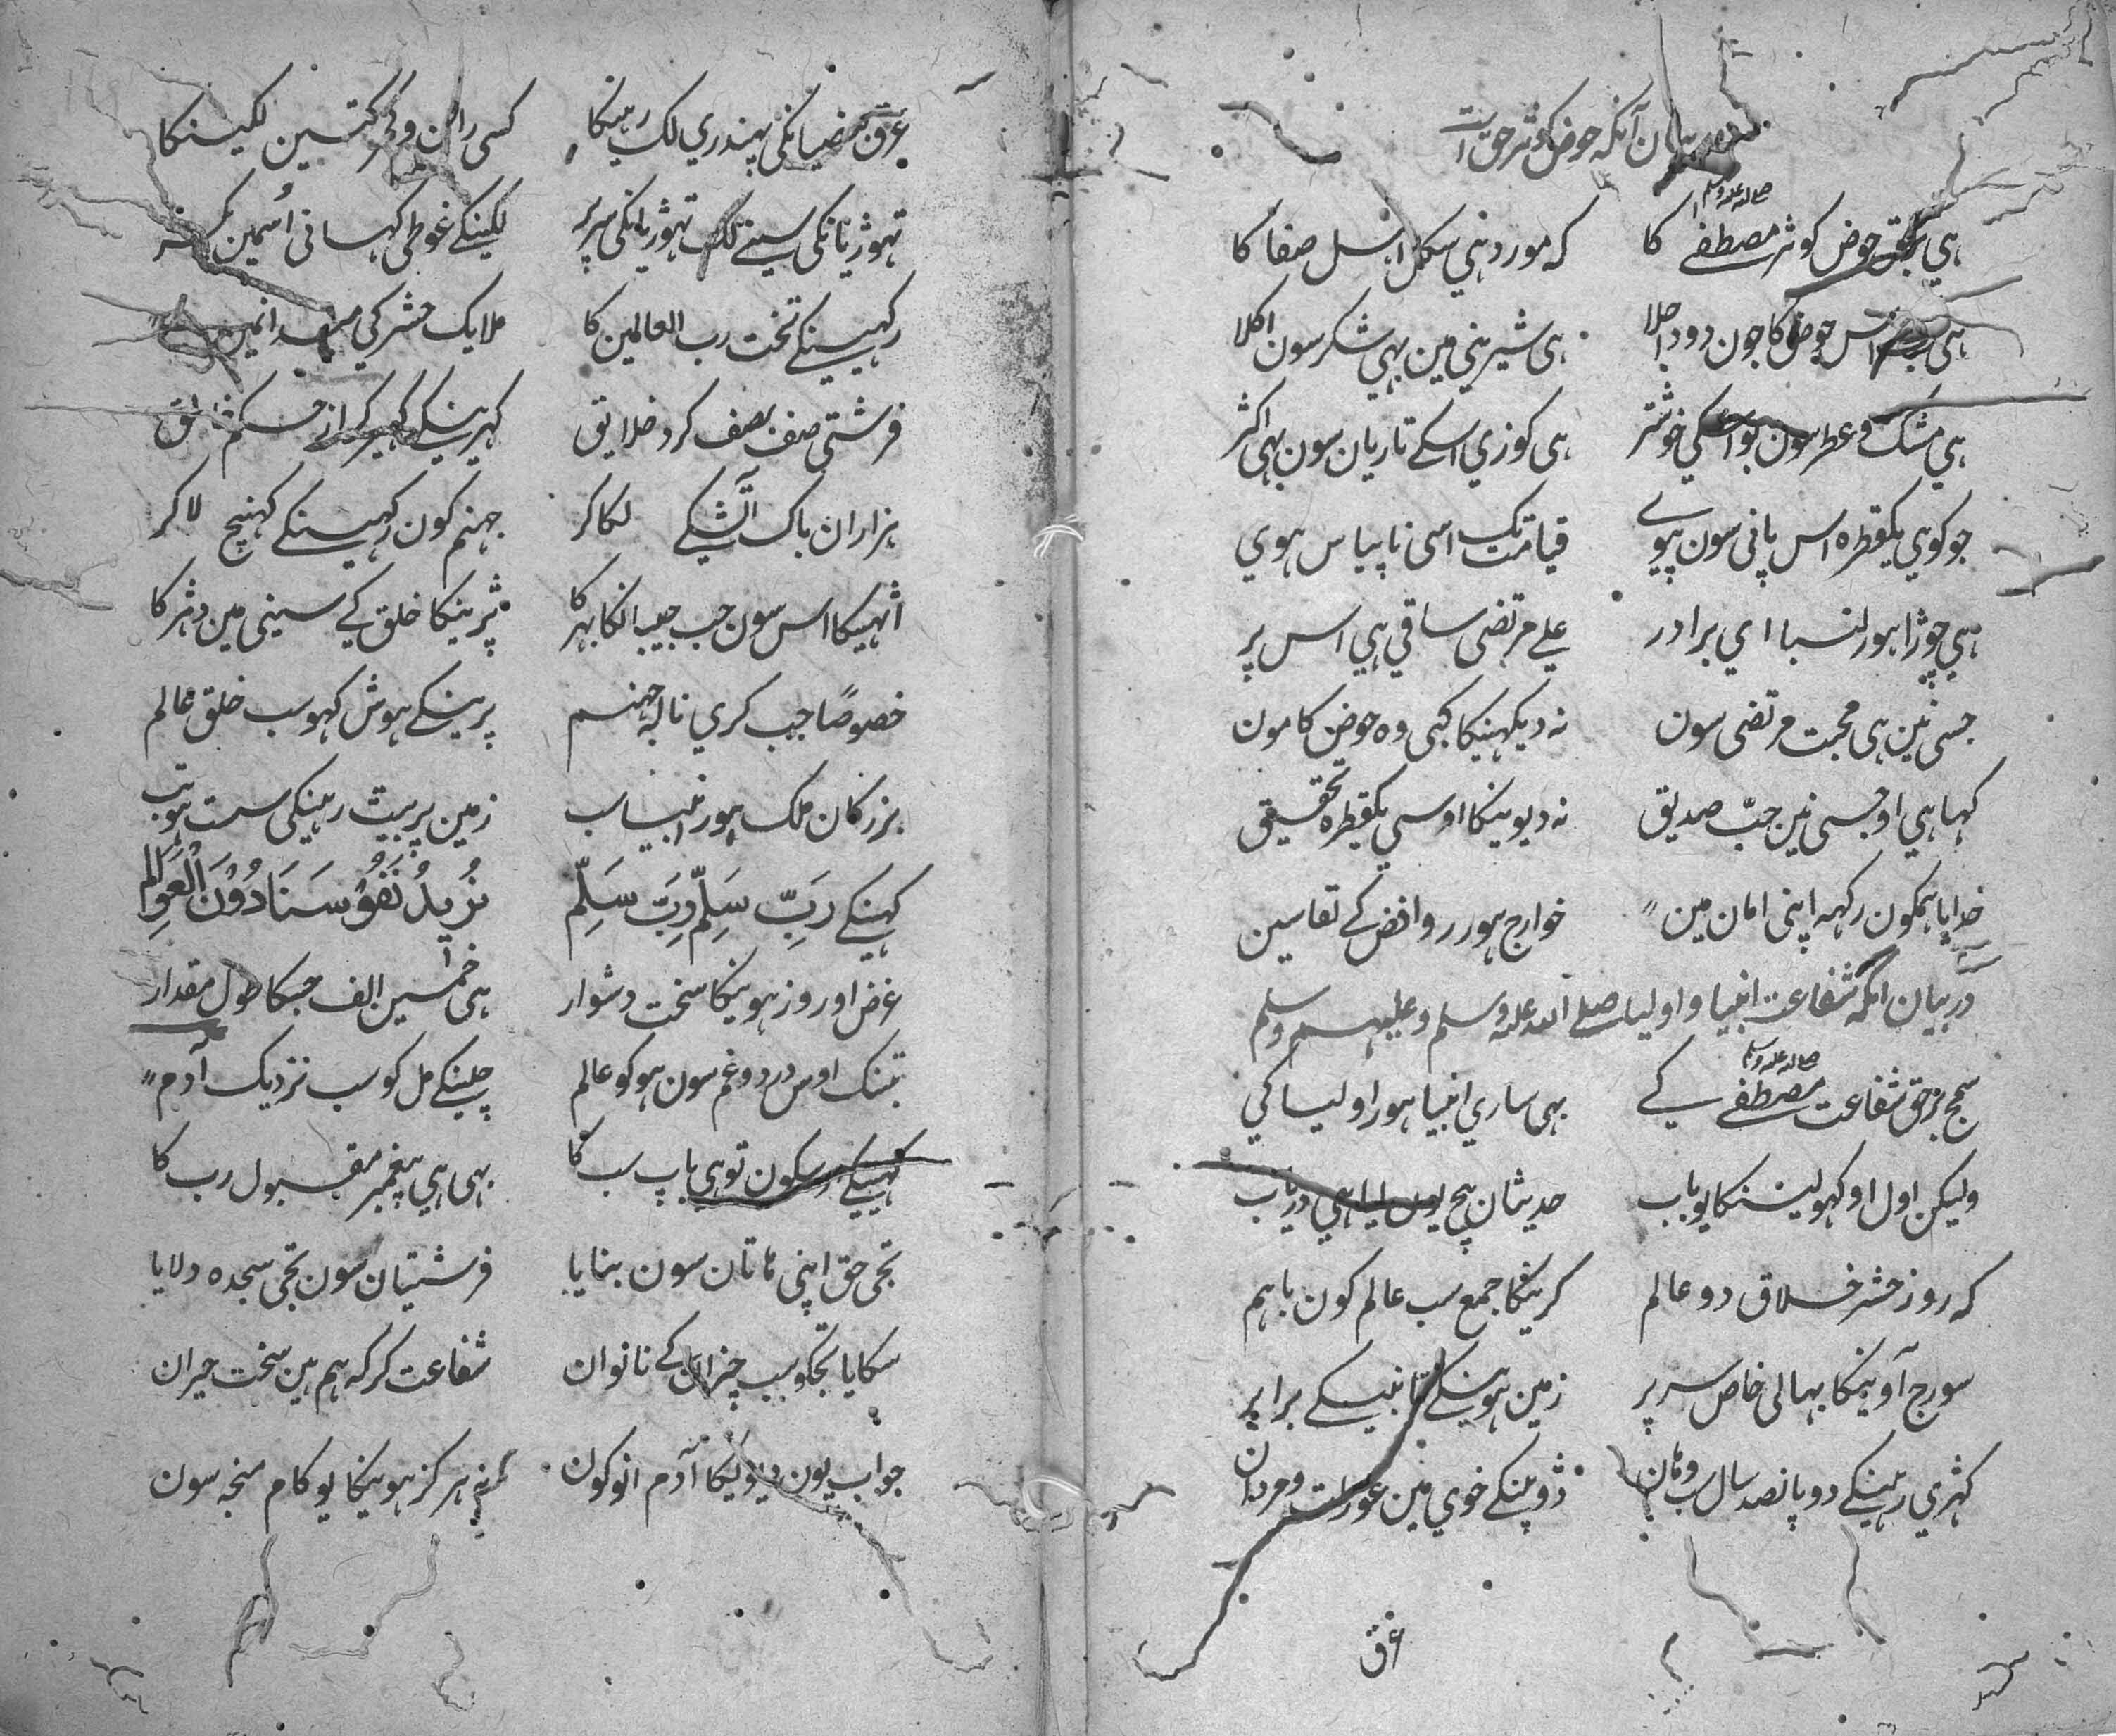 بیان آنکه حوض کوثر حق است
صلی الله علیه وسلم
هی برحق حوض کوثر مصطفے کا کہ مورد ہی سکل اہل صفا کا
ہی اس حوض کا جون دود اجلا ہی شیرینی مین بہی شکر سون اکلا
ہی مشک و عطر سون بو اسکی خوشتر ہی کوزی اسکے تاریان سون بہی اکثر
جو کوی یکقطره اس پانی سون پیوے قیامت تک اسی نا پیاس ہوی
ہی چوڑا ہور لنبا ای برادر علے مرتضی ساقی ہی اس پر
جسی نین ہی محبت مرتضی سون نہ دیکہینکا کبی وه حوض کا مون
کہا ہی او جسی نین حبّ صدیق نہ دیوینکا اوسی یکقطره تحقیق
خدایا ہمکون رکہہ اپنی امان مین خوارج ہور روافض کے تقاسین
در بیان آنکہ شفاعت انبیا و اولیا صلے الله علیہ وسلم و علیہم وسلم
صلی الله علیه وسلم
سمج برحق شفاعت مصطفے کے بہی ساری انبیا ہور اولیا کی
ولیکن اول او کہولینکا یو باب حدیثان بیچ یون ایا ہی دریاب
کہ روز حشر خلاق دو عالم کرینکا جمع سب عالم کون باہم
سورج آوینکا بہالی خاص سر پر زمین ہوینکے تانبیکے برابر
کہڑی رہینکے دو پانصد سال سب وہان ڈوپینکے خوی مین عورات و مردان
عرق
عرق بعضیانکی پہندری لک رہنکا کسی ران و کمر کتین لکینکا
تہوڑیانکی سینے لک تہوڑیانکی سر پر لکینکے غوطی کہانی اُسمین
رکہینکے تخت رب العالمین کا ملایک حشر کی
فرشتی صف بصف کرد خلایق کہرینکے کہیر کر از حکم خالق
ہزاران باک آتشکے لکا کر جہنم کون رکہینکے کہنیچ لا کر
اٹہیکا اس سون جب جیب انکا بہرکا پڑینکا خلق کے سینی مین دہڑکا
خصوصًا جب کری نالہ جہنم پرینکے ہوش کہو سب خلق عالم
بزرکان ملک ہور انبیا سب زمین پر بیٹ رہینکی ست ہو تب
کہینکے رَبِّ سَلِّمْ رَبِّ سَلِّمْ نُرِیدُ نَفُوسَنَا دُوْنَ الْعَوَالِم
غرض او روز ہوینکا سخت دشوار ہی خمسین الف جسکا طول مقدار
تبنک اوس درد و غم سون ہو کو عالم چلینکے مل کو سب نزدیک آدم
کہینکے سکون تو ہی باپ سب کا بہی ہی پیغمبر مقبول رب کا
تجی حق اپنی ہاتان سون بنایا فرشتیان سون تجی سجده دلایا
سکایا تجکو سب چیزان کے نانوان شفاعت کر کہ ہم ہین سخت حیران
جواب یون دیویکا آدم انو کون ہرکز ہوینکا یو کام منجہ سون